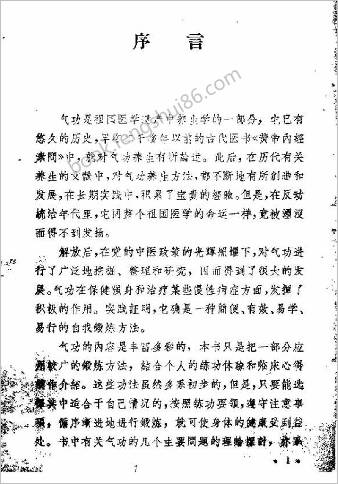 序言
气功是祖国医学遗产中养生学的一部份，它已有
悠久的历史，早在二千多年以前的古代医书《黄帝内经
素问》中，就对气功养生有所论述。此后，在历代有关
养生的文献中，对气功养生方法，都不断地有所创造和
发展，在长期实践中，积累了宝贵的经验。但是，在反动
统治年代里，它同整个祖国医学的命运一样，竟被湮没
而得不到发扬。
解放后，在党的中医政策的光辉照耀下，对气功进
行了广泛地挖掘、整理和研究，因而得到了很大的发
展。气功在保健强身和治疗某些慢性病症方面，发挥了
积极的作用。实践证明，它确是一种简便、有效、易学、
易行的自我锻炼方法。
气功的内容是丰富多彩的，本书只是把一部分应
用较广的锻炼方法，结合个人的练功体验和临床心得
作介绍。这些功法虽然多系初步的，但是，只要能选
择其中适合于自己情况的，按照练功要领，遵守注意事
项，循序渐进地进行锻炼，就可使身体的健康受到益
处。书中有关气功的几个主要问题的理论探讨，亦
• 1 •
book.fengshui86.com